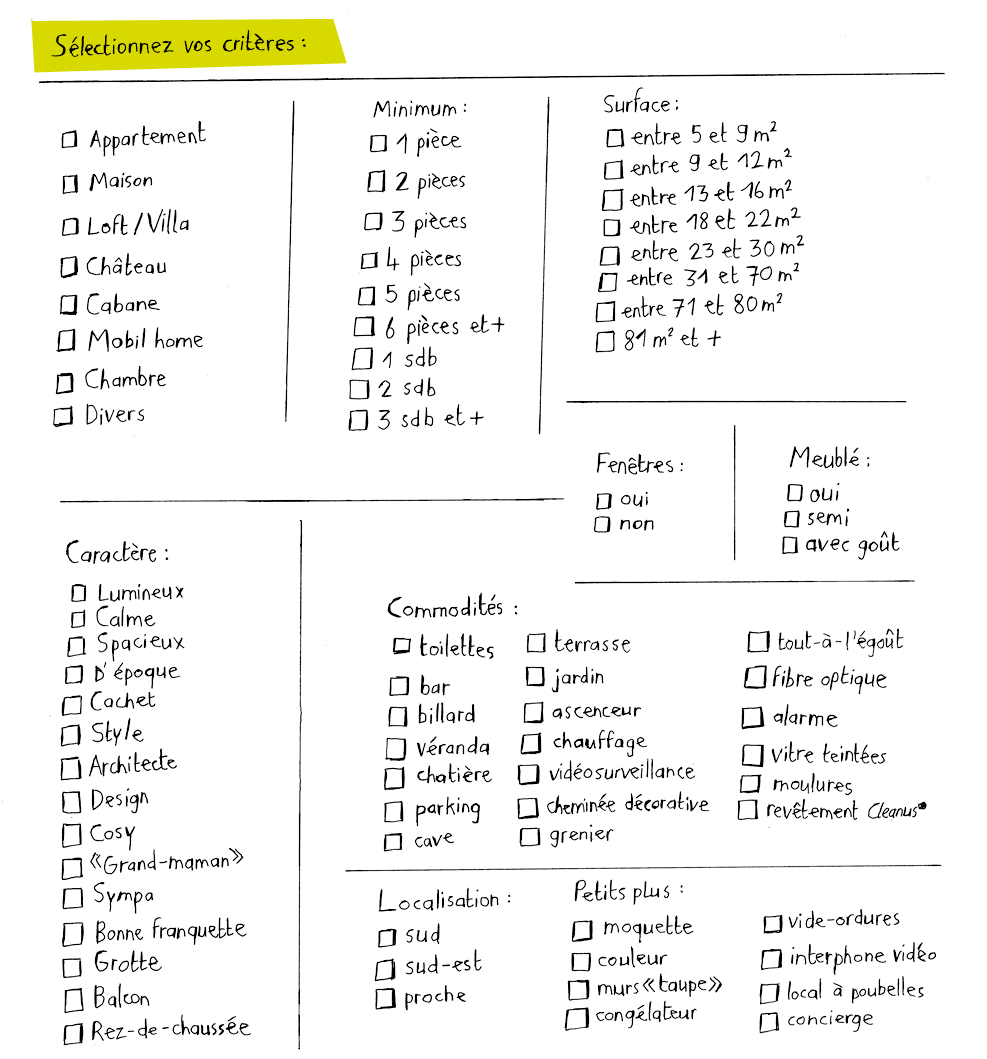 Sélectionnez vos critères :
Appartement
Maison
Loft/Villa
Château
Cabane
Mobil home
Chambre
Divers
Minimum :
1 pièce
2 pièces
3 pièces
4 pièces
5 pièces
6 pièces et+
1 sdb
2 sdb
3 sdb et+
Surface :
entre 5 et 9m²
entre 9 et 12m²
entre 13 et 16m²
entre 18 et 22m²
entre 23 et 30m²
entre 31 et 70m²
entre 71 et 80m²
81m² et +
Fenêtres :
oui
non
Meublé :
oui
semi
avec goût
Caractère :
Lumineux
Calme
Spacieux
D'époque
Cachet
Style
Architecte
Design
Cosy
«Grand-maman»
Sympa
Bonne franquette
Grotte
Balcon
Rez-de-chaussée
Commodités :
toilettes
bar
billard
véranda
chatière
parking
cave
terrasse
jardin
ascenceur
chauffage
vidéosurveillance
cheminée décorative
grenier
tout-à-l'égoût
fibre optique
alarme
vitre teintées
moulures
revêtement Cleanus
Localisation :
sud
sud-est
proche
Petits plus :
moquette
couleur
murs «taupe»
congélateur
vide-ordures
interphone vidéo
local à poubelles
concierge